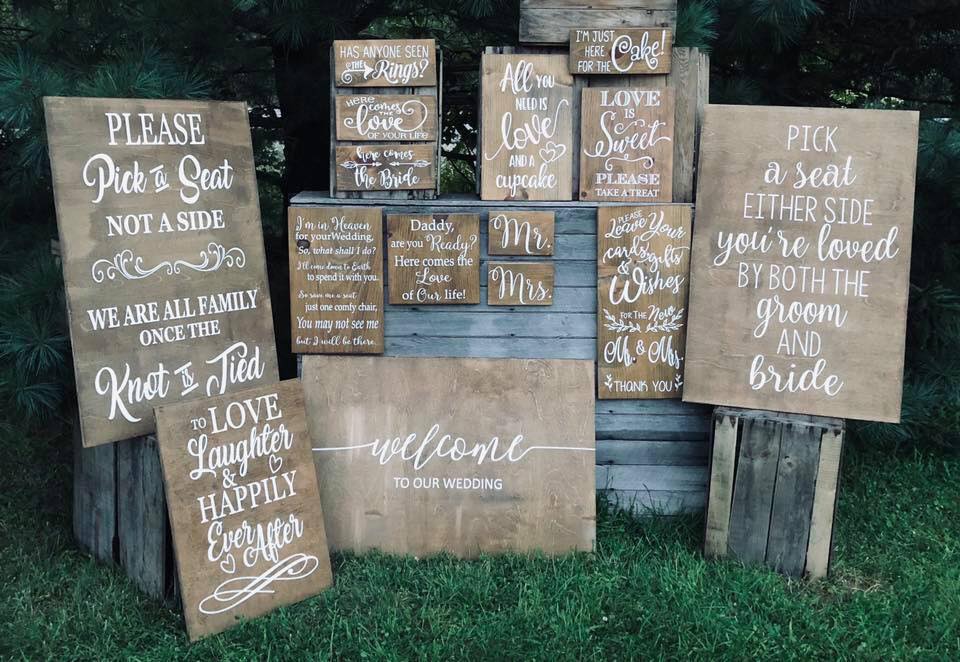 PLEASE
Pick a Seat
NOT A SIDE
WE ARE ALL FAMILY
ONCE THE
Knot is Tied
TO LOVE
Laughter
&
HAPPILY
Ever
After
HAS ANYONE SEEN
THE Rings?
HERE
comes
THE
love
OF YOUR LIFE
here comes
the Bride
I'M JUST
HERE
FOR THE Cake!
All You
NEED IS
love
AND A
cupcake
LOVE
IS
Sweet
PLEASE
TAKE A TREAT
I'm in Heaven
for your Wedding,
So, what shall I do?
I'll come down to Earth
to spend it with you.
So save me a seat
just one comfy chair,
You may not see me
but I will be there.
Daddy,
are you Ready?
Here comes the
Love
of Our life!
Mr.
Mrs.
PLEASE
Leave Your
cards, gifts
&
Wishes
FOR THE New
Mr. & Mrs.
THANK YOU
welcome
TO OUR WEDDING
PICK
a seat
EITHER SIDE
you're loved
BY BOTH THE
groom
AND
bride